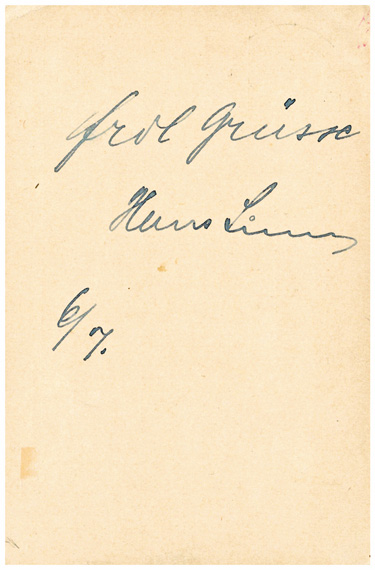 frdl Grüsse
Hans
6/7.